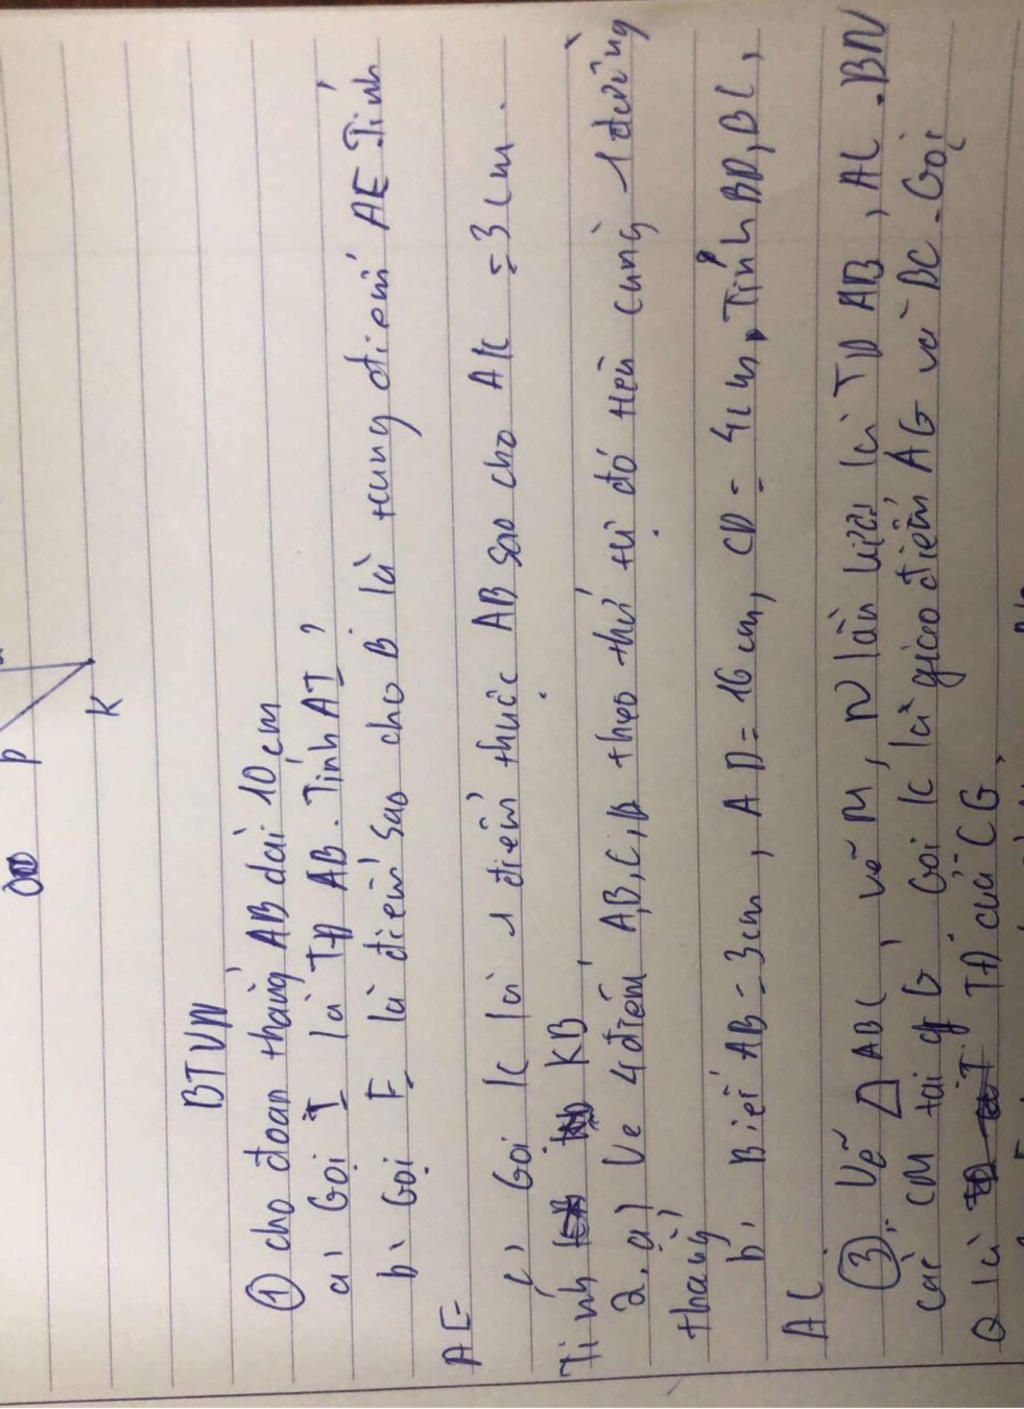 P
K
BTVN
① cho đoạn thẳng AB dài 10cm
a, Gọi I là TĐ AB. Tính AI,
b, Gọi E là điểm sao cho B là trung điểm AE. Tính
AE
c, Gọi K là 1 điểm thuộc AB sao cho AK = 3cm.
Tính KB
2. a) Vẽ 4 điểm A,B,C,D theo thứ tự đó trên cùng 1 đường
thẳng
b, Biết AB = 3cm, AD = 16cm, CD = 4cm. Tính BD, BC,
AC
③, Vẽ Δ ABC, vẽ M, N lần lượt là TĐ AB, AC. BN
cắt CM tại G. Gọi K là giao điểm AG và BC. Gọi
Q là TĐ của CG,